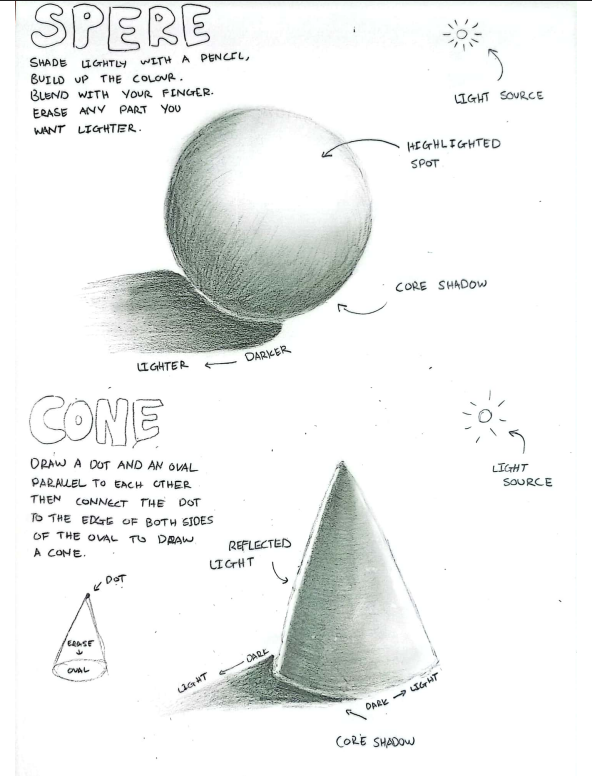 SPERE
SHADE LIGHTLY WITH A PENCIL,
BUILD UP THE COLOUR.
BLEND WITH YOUR FINGER.
ERASE ANY PART YOU
WANT LIGHTER.
LIGHT SOURCE
HIGHLIGHTED
SPOT
CORE SHADOW
LIGHTER ← DARKER
CONE
DRAW A DOT AND AN OVAL
PARALLEL TO EACH OTHER
THEN CONNECT THE DOT
TO THE EDGE OF BOTH SIDES
OF THE OVAL TO DRAW
A CONE.
LIGHT
SOURCE
REFLECTED
LIGHT
DOT
ERASE
OVAL
LIGHT ← DARK
DARK → LIGHT
CORE SHADOW